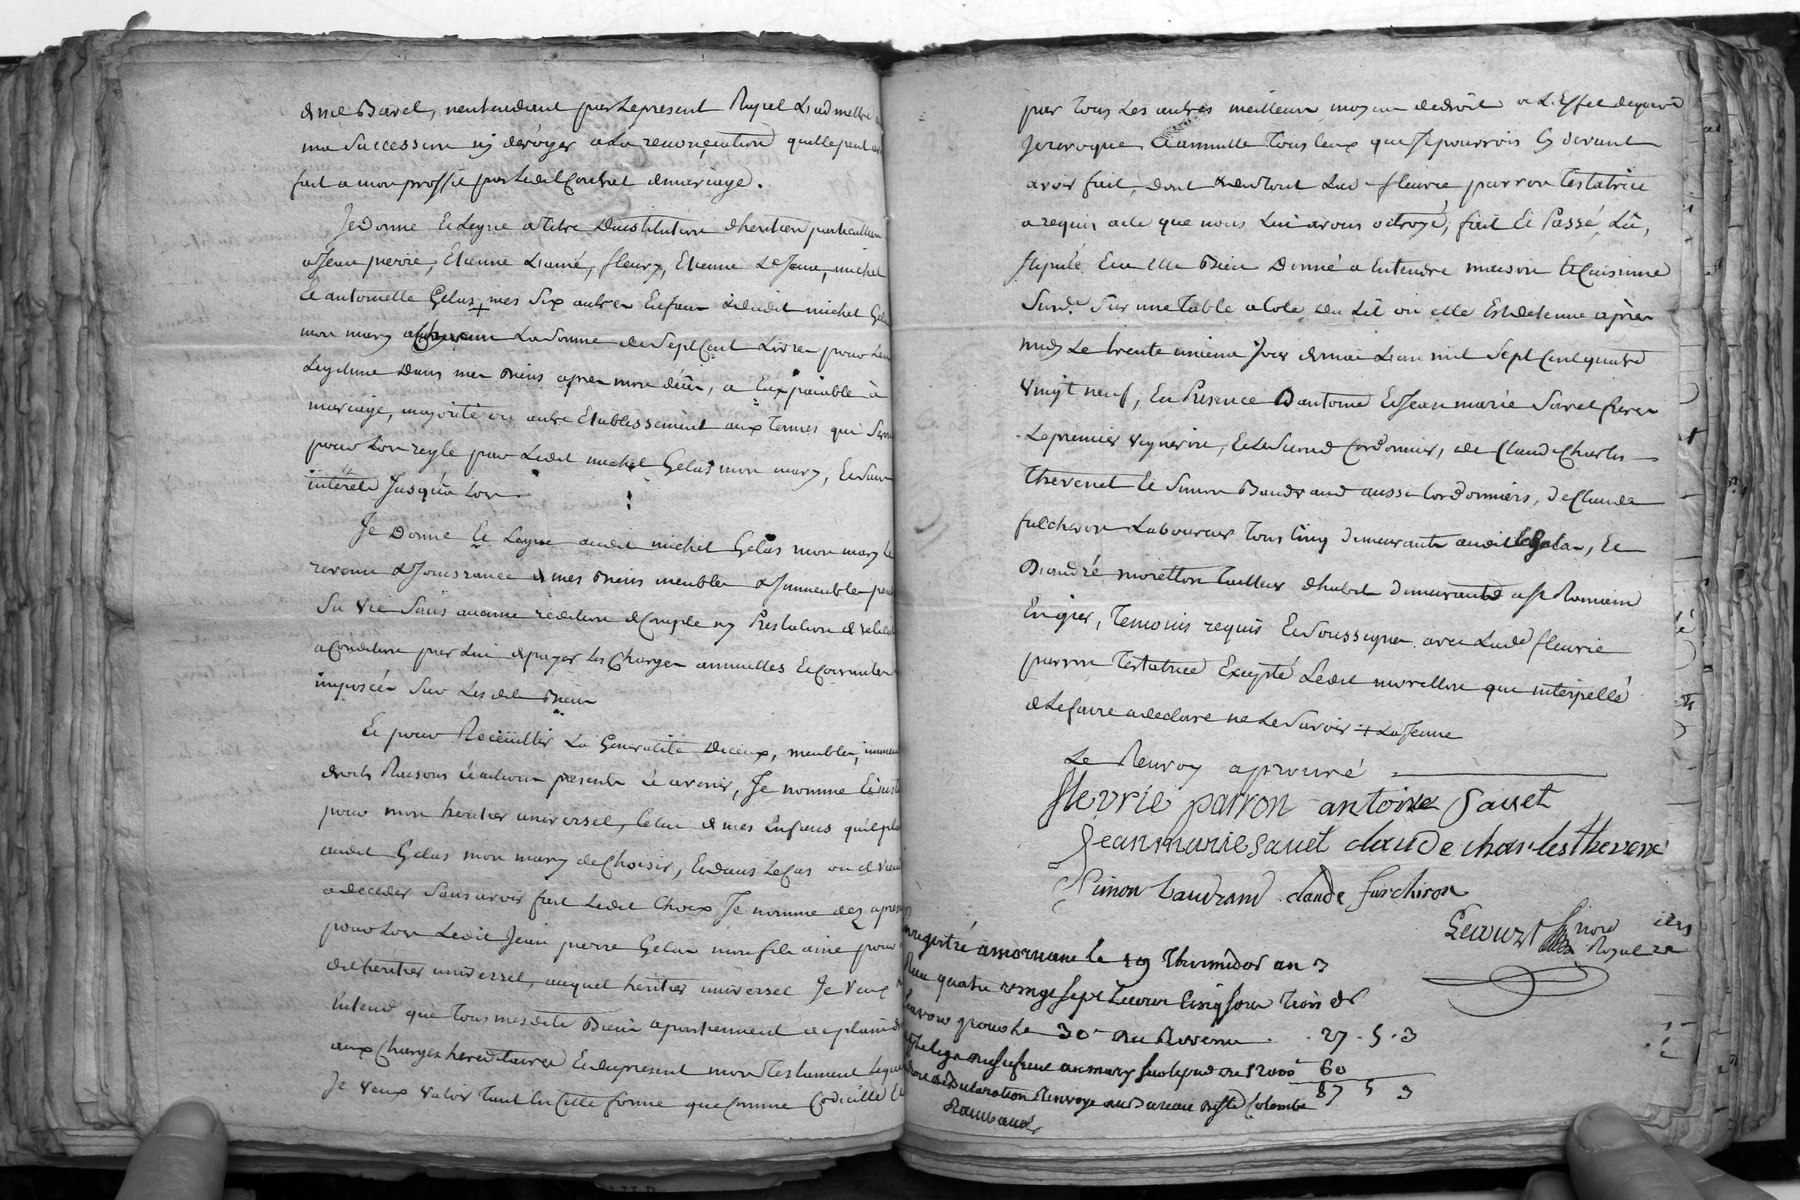 de me Bavel, nentendant par le present Rapel L'admettre a
ma Succession ny déroger a la renonciation quelle peut avoir
fait a mon proffit par Ledit Contrat de mariage.
Je Donne et Legue a titre D'institution d'heritiers particuliers
a Jean pierre, Etienne L'ainé, fleury, Etienne Le Jeune, michel
et antoinette Gelas + mes Six autres Enfans & dudit michel Gelas
mon mary a Chacun La Somme de Sept Cent Livres pour Leur
Legitime Dans mes Biens apres mon décès, a Eux paiable à
mariage, majorité ou autre Etablissement aux Termes qui Seront
pour Lors reglé par Ledit michel Gelas mon mary, Et Sans
intérêts Jusqu'a Lors
Je Donne Et Legue audit michel Gelas mon mary Le
revenu & Jouissance de mes Biens meubles & Immeubles pendant
Sa vie Sans aucune redition de Compte ny Prestation de reliquat
a Condition par Lui de payer les Charges annuelles Et Courantes
imposées Sur Lesdits Biens
Et pour Recëuillir La Generalité D'iceux, meubles, immeubles
droits Raisons & actions presents & avenir, Je nomme & institue
pour mon heritier universel, Celui de mes Enfans qu'il plaira
audit Gelas mon mary de Choisir, Et dans Le Cas ou il viendroit
a deceder Sans avoir fait Ledit Choix Je nomme dez apresent
pour Lors Ledit Jean pierre Gelas mon fils ainé pour
dit heritier universel, auquel heritier universel Je veux &
Entend que Tous mesdits Biens apartiennent de plain droit
aux Charges hereditaires Et du present mon Testament Lequel
Je veux valoir Tant En Cette forme que Comme Codicille &
par Tous Les autres meilleurs moyens de droit a L'Effet de quoi
Je revoque & annulle Tous Ceux que Je pourrois Cy devant
avoir fait, dont & du tout Lad. fleurie parron testatrice
a requis acte que nous Lui avons octroyé, fait Et Passé, Lû,
Repeté Eu Elle Bien Donné a Entendre maison & Cuisine
Susd.e Sur une Table a Coté du Lit ou elle Est detenue après
midy Le trente unieme Jour de mai L'an mil Sept Cent quatre
vingt neuf, En Presence D'antoine Et Jean marie Savet freres
Le premier vigneron, Et Le Second Cordonnier, de Claude Charles
Thevenet Et Simon Baudrand aussi Cordonniers, de Claude
fulchiron Laboureur Tous Cinq demeurants audit Egalas, Et
D'andré moretton Tailleur d'habit demeurant a St Romain
En gier, Temoins requis Et Soussignes avec Lad.e fleurie
parron Testatrice Excepté Ledit moretton que interpellé
de Le faire a declaré ne Le Savoir + La Jeune
Le Renvoy aprouvé
fleurie parron antoine Savet
Jean marie Savet claude charles thevene
Simon baudrand claude fulchiron
Lecourt
nore
Royal
enregistré a mornant le 19 Thermidor an 3
Reçu quatre vingt sept livres Cinq sous trois d.
Savoir pour le 30e du Revenu . 27 . 5 . 3
60
87 5 3
declaration Renvoyé au Bureau de Ste Colombe